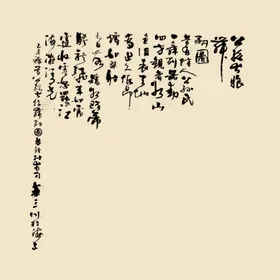 公孫大娘
舞
劍圖
昔有佳人公孫氏
一舞劍器動
四方觀者如山
色沮喪天地
為之久低昂
㸌如羿射
九日落矯如群帝
驂龍翔來如雷
霆收震怒罷如江
海凝清光